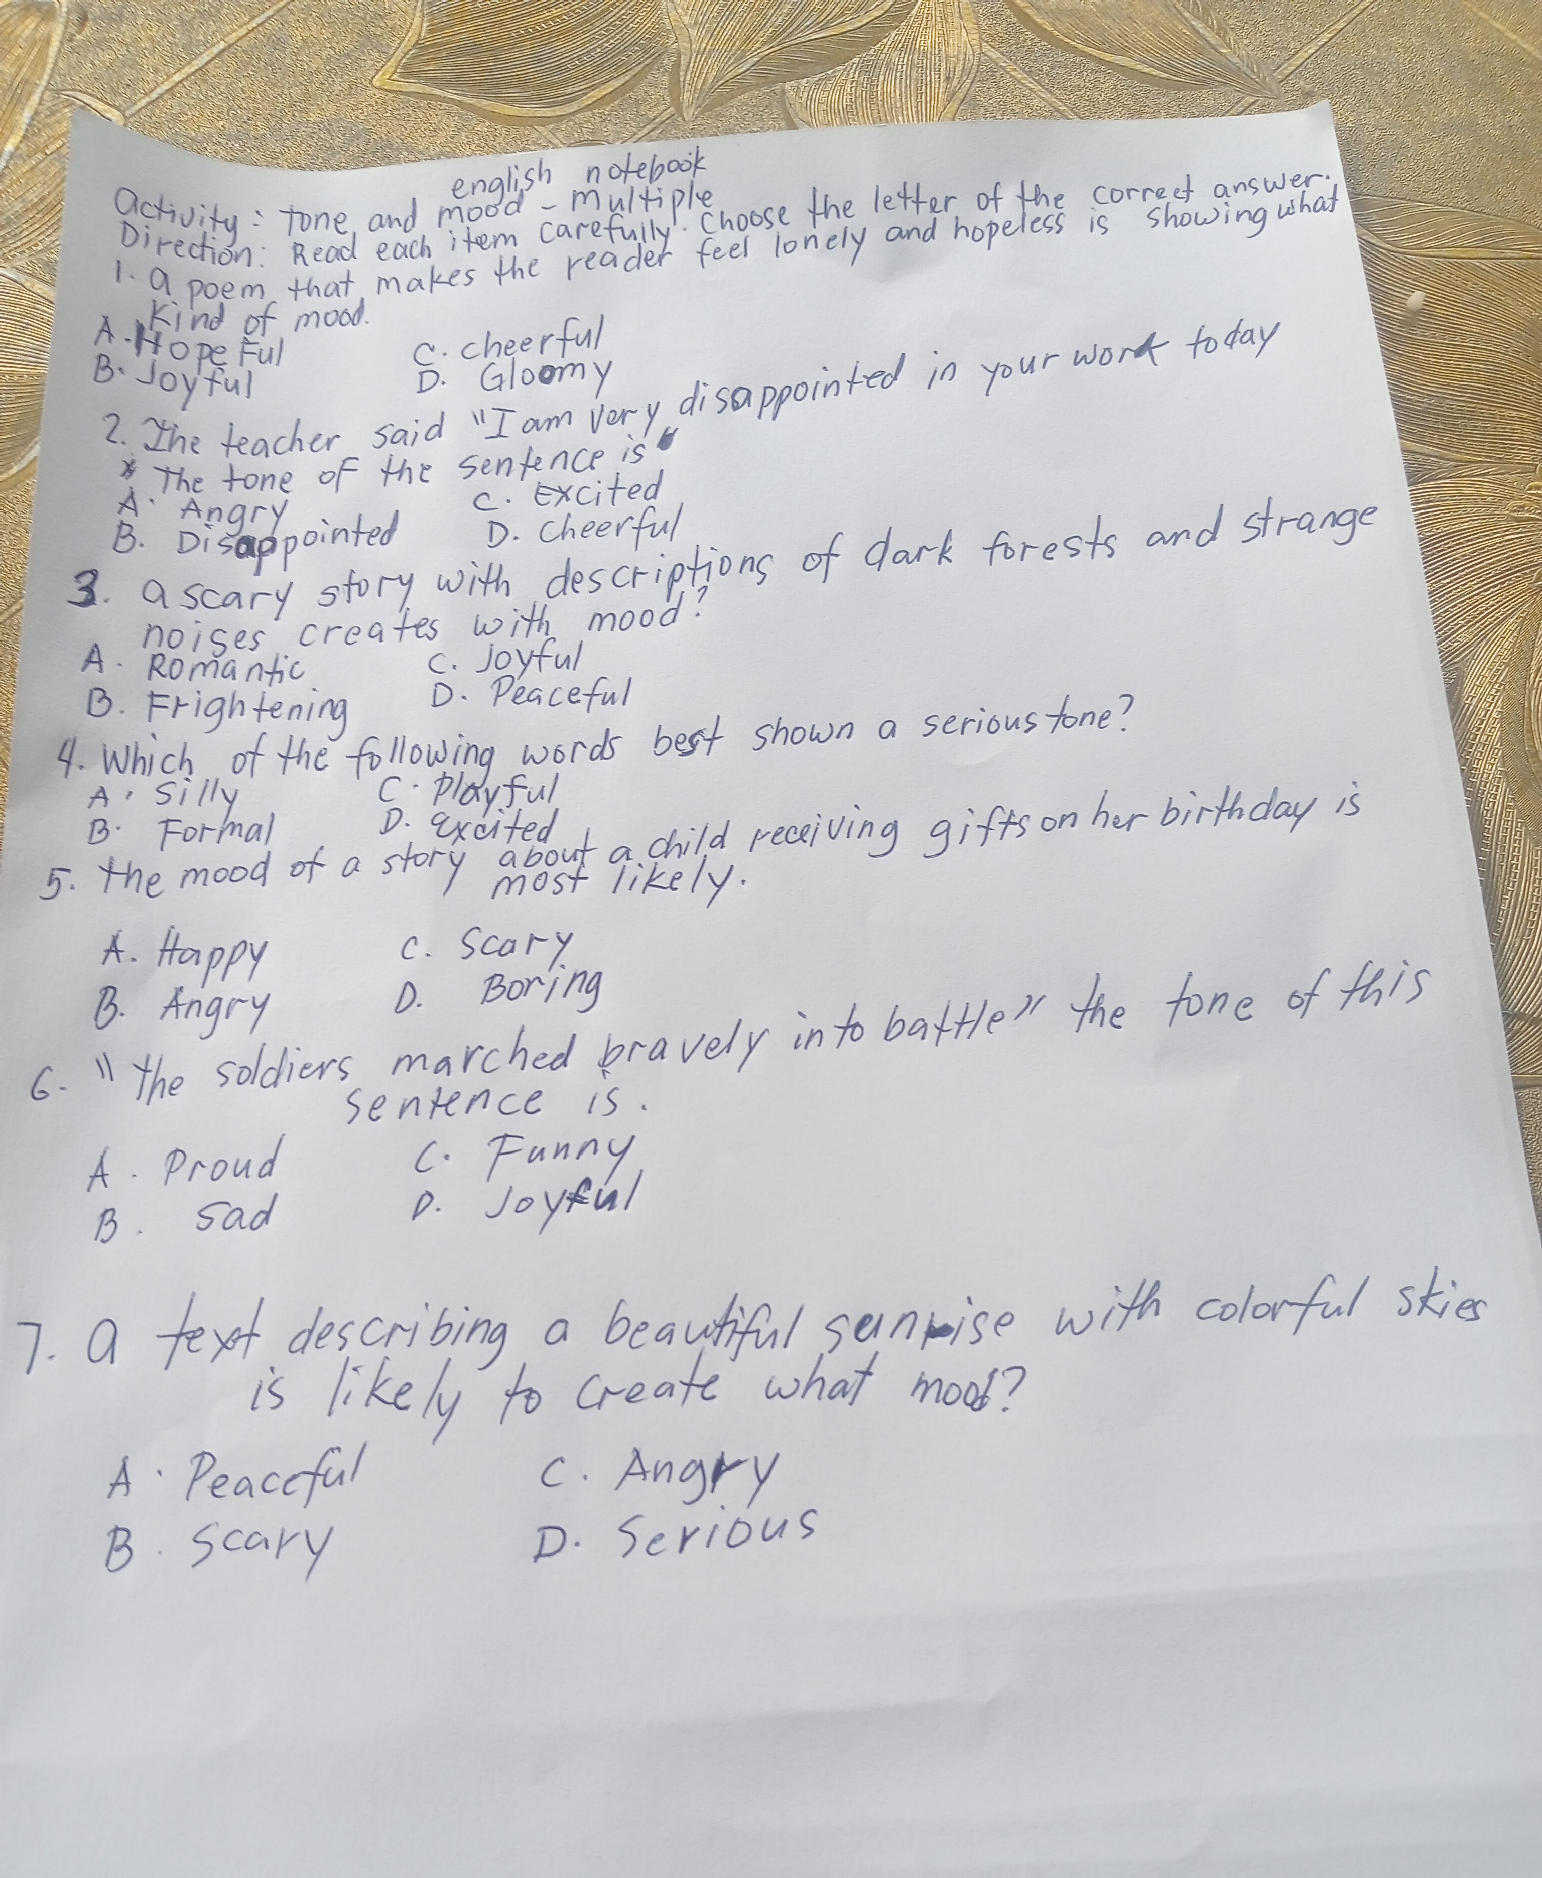 english notebook
Activity: Tone and mood - multiple
Direction: Read each item carefully. Choose the letter of the correct answer.
1. A poem that makes the reader feel lonely and hopeless is showing what
kind of mood.
A. Hopeful C. cheerful
B. Joyful D. Gloomy
2. The teacher said "I am very disappointed in your work today
* The tone of the sentence is"
A. Angry C. Excited
B. Disappointed D. Cheerful
3. A scary story with descriptions of dark forests and strange
noises creates with mood?
A. Romantic C. Joyful
B. Frightening D. Peaceful
4. Which of the following words best shown a serious tone?
A. Silly C. Playful
B. Formal D. excited
5. the mood of a story about a child receiving gifts on her birthday is
most likely.
A. Happy C. Scary
B. Angry D. Boring
6. "the soldiers marched bravely into battle" the tone of this
sentence is.
A. Proud C. Funny
B. Sad D. Joyful
7. A text describing a beautiful sunrise with colorful skies
is likely to create what mood?
A. Peaceful C. Angry
B. Scary D. Serious